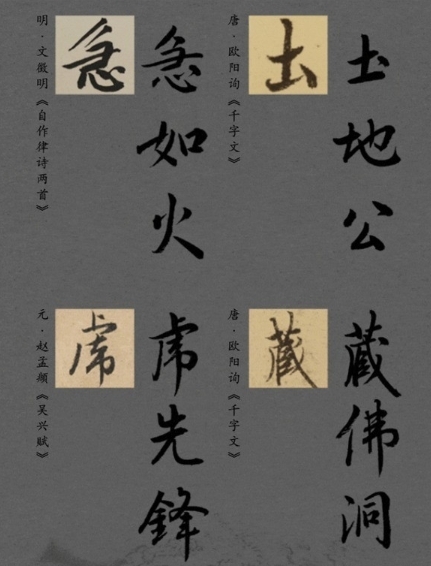 土地公
土
唐·欧阳询《千字文》
急如火
急
明·文徵明《自作律诗两首》
藏佛洞
藏
唐·欧阳询《千字文》
虎先鋒
虎
元·赵孟頫《吴兴赋》